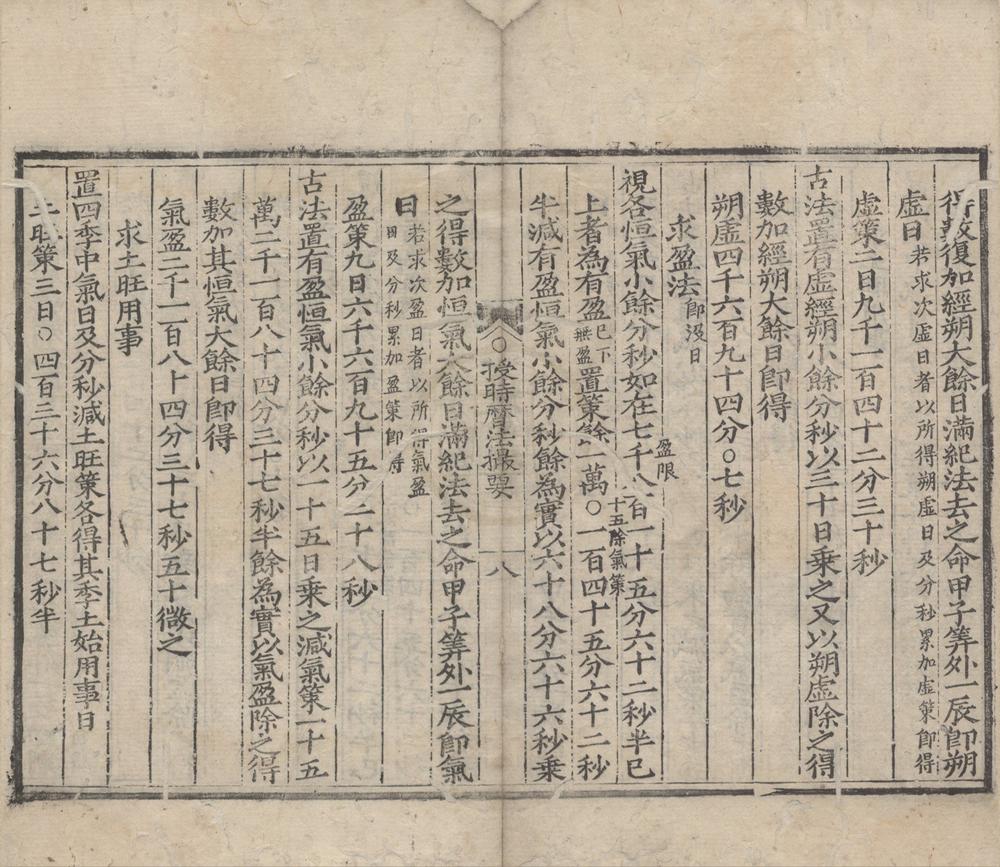 得數復加經朔大餘日滿紀法去之命甲子筭外一辰即朔
虛日若求次虛日者以所得朔虛日及分秒累加虛策即得
虛策二日九千一百四十二分三十秒
古法置有虛經朔小餘分秒以三十日乗之又以朔虛除之得
數加經朔大餘日即得
朔虛四千六百九十四分〇七秒
求盈法即没日
視各恒氣小餘分秒如在七千八百一十五分六十二秒半已盈限
上者為有盈已下無盈置策餘一萬〇一百四十五分六十二秒十五除氣策
半減有盈恒氣小餘分秒餘為實以六十八分六十六秒乗
授時曆法撮要 十八
之得數加恒氣大餘日滿紀法去之命甲子筭外一辰即氣盈
日若求次盈日者以所得氣盈日及分秒累加盈策即得
盈策九日六千六百九十五分二十八秒
古法置有盈恒氣小餘分秒以一十五日乗之減氣策一十五
萬二千一百八十四分三十七秒半餘為實以氣盈除之得
數加其恒氣大餘日即得
氣盈二千一百八十四分三十七秒五十微之
求土旺用事
置四季中氣日及分秒減土旺策各得其季土始用事日
土旺策三日〇四百三十六分八十七秒半